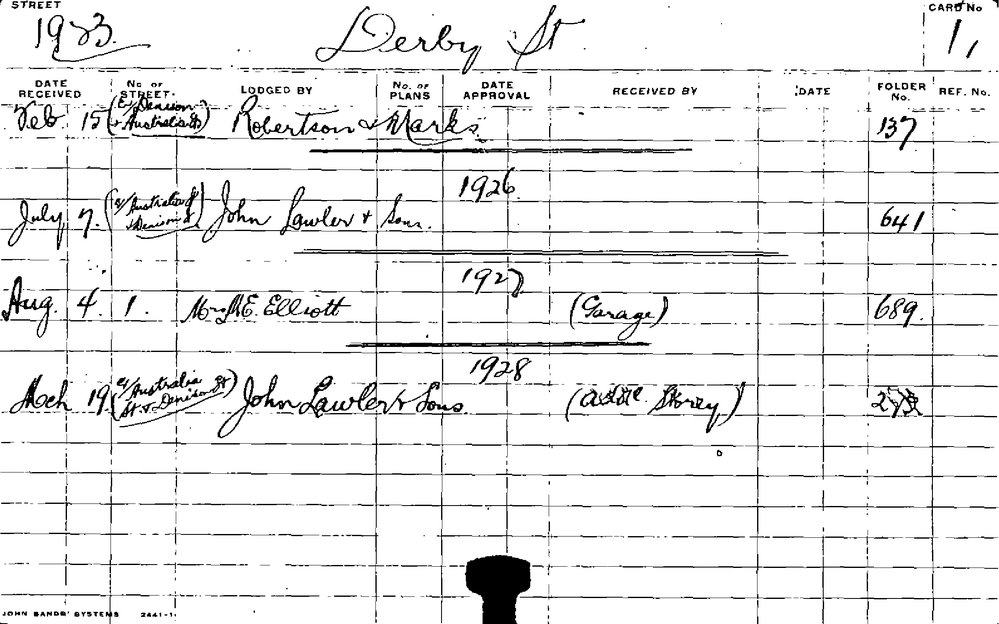 STREET
CARD No
1923. Derby St 1,
DATE RECEIVED No OF STREET. LODGED BY No. OF PLANS DATE APPROVAL RECEIVED BY DATE FOLDER No. REF. No.
Feb. 15 (E/ Denison & Australia St) Robertson & Marks. 137
1926.
July 7. (E/ Australia St & Denison St) John Lawler & Sons. 641
1927
Aug. 4. 1. Mrs M.E. Elliott (Garage) 689.
1928
Mch 19. (E/ Australia St & Denison St) John Lawler & Sons. (Storey)
JOHN SANDS' SYSTEMS 2441-1